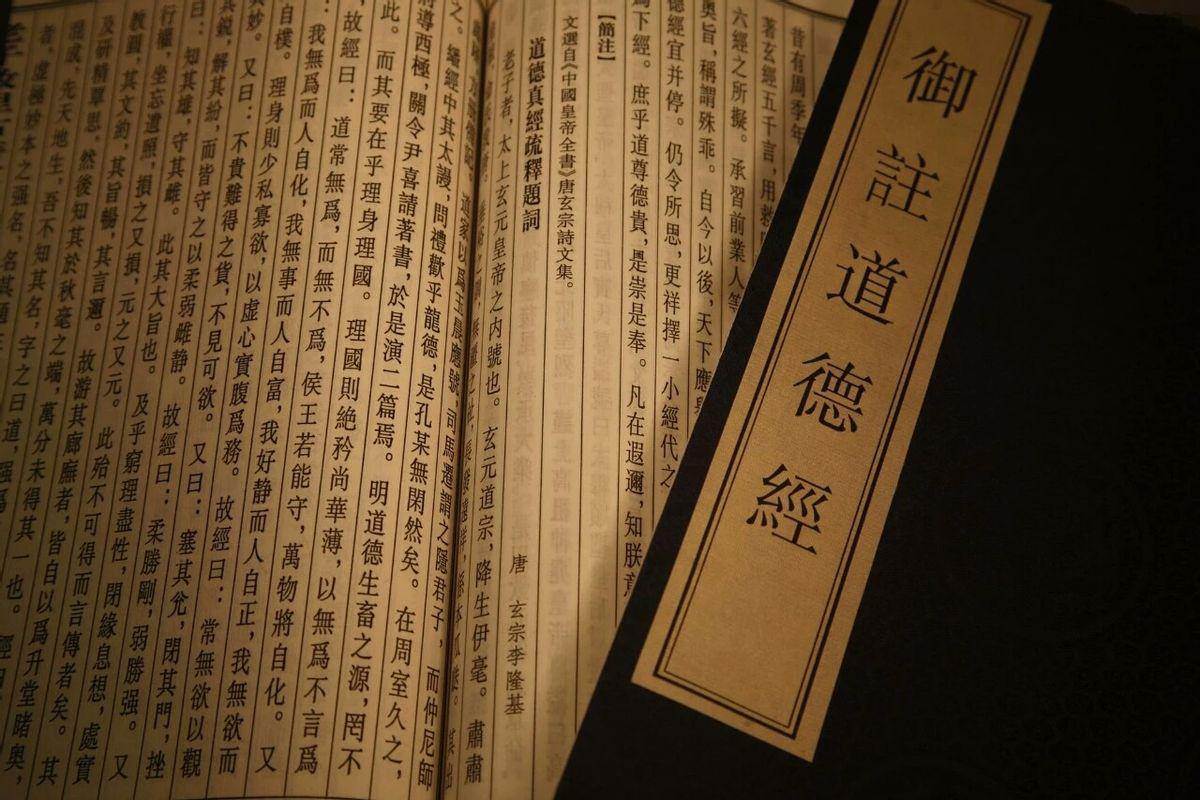 御註道德經
昔有周季年
著玄經五千言,用救
六經之所擬。承習前業人等
奧旨,稱謂殊乖。自今以後,天下應
德經宜并停。仍令所思,更祥擇一小經代之
爲下經。庶乎道尊德貴,是崇是奉。凡在遐邇,知朕意
【簡注】
文選自《中國皇帝全書》唐玄宗詩文集。
道德真經疏釋題詞
唐 玄宗李隆基
老子者,太上玄元皇帝之內號也。玄元道宗,降生伊毫。肅肅
道家以爲玉晨應號,司馬遷謂之隱君子,而仲尼師
之。繙經中其太謾,問禮歎乎龍德,是孔某無閑然矣。在周室久之,
將導西極,關令尹喜請著書,於是演二篇焉。明道德生畜之源,罔不
此。而其要在乎理身理國。理國則絶矜尚華薄,以無爲不言爲
故經曰:道常無爲,而無不爲,侯王若能守,萬物將自化。又
我無爲而人自化,我無事而人自富,我好静而人自正,我無欲而
自樸。理身則少私寡欲,以虚心實腹爲務。故經曰:常無欲以觀
其妙。又曰:不貴難得之貨,不見可欲。又曰:塞其兌,閉其門,挫
其銳,解其紛,而皆守之以柔弱雌静。故經曰:柔勝剛,弱勝强。又
曰:知其雄,守其雌。此其大旨也。及乎窮理盡性,閉緣息想,處實
行權,坐忘遺照,損之又損,元之又元。此殆不可得而言傳者矣。其
教圓,其文約,其旨暢,其言邇。故游其廊廡者,皆自以爲升堂睹奥,
及研精覃思,然後知其於秋毫之端,萬分未得其一也。經曰
混成,先天地生,吾不知其名,字之曰道,强爲
者,虚極妙本之强名,名其